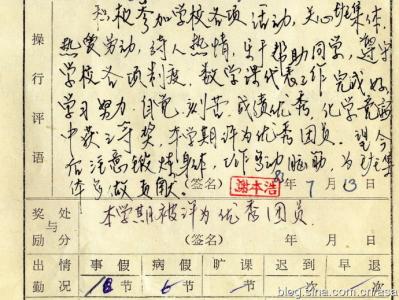 操行评语
积极参加学校各项活动,关心班集体.
热爱劳动,待人热情,乐于帮助同学,遵守
学校各项制度.数学课代表工作完成好.
学习努力.自觉.刻苦.成绩优秀,化学竞赛
中获三等奖.本学期评为优秀团员.望今
后注意锻炼身体,工作多动脑筋,为班集
体多做贡献
(签名) 谢本浩 年 7 月 13 日
奖励与处分
本学期被评为优秀团员.
(签名) 年 月 日
出勤情况
事假 病假 旷课 迟到 早退
节 6 节 节 次 次
blog.sina.com.cn/asa